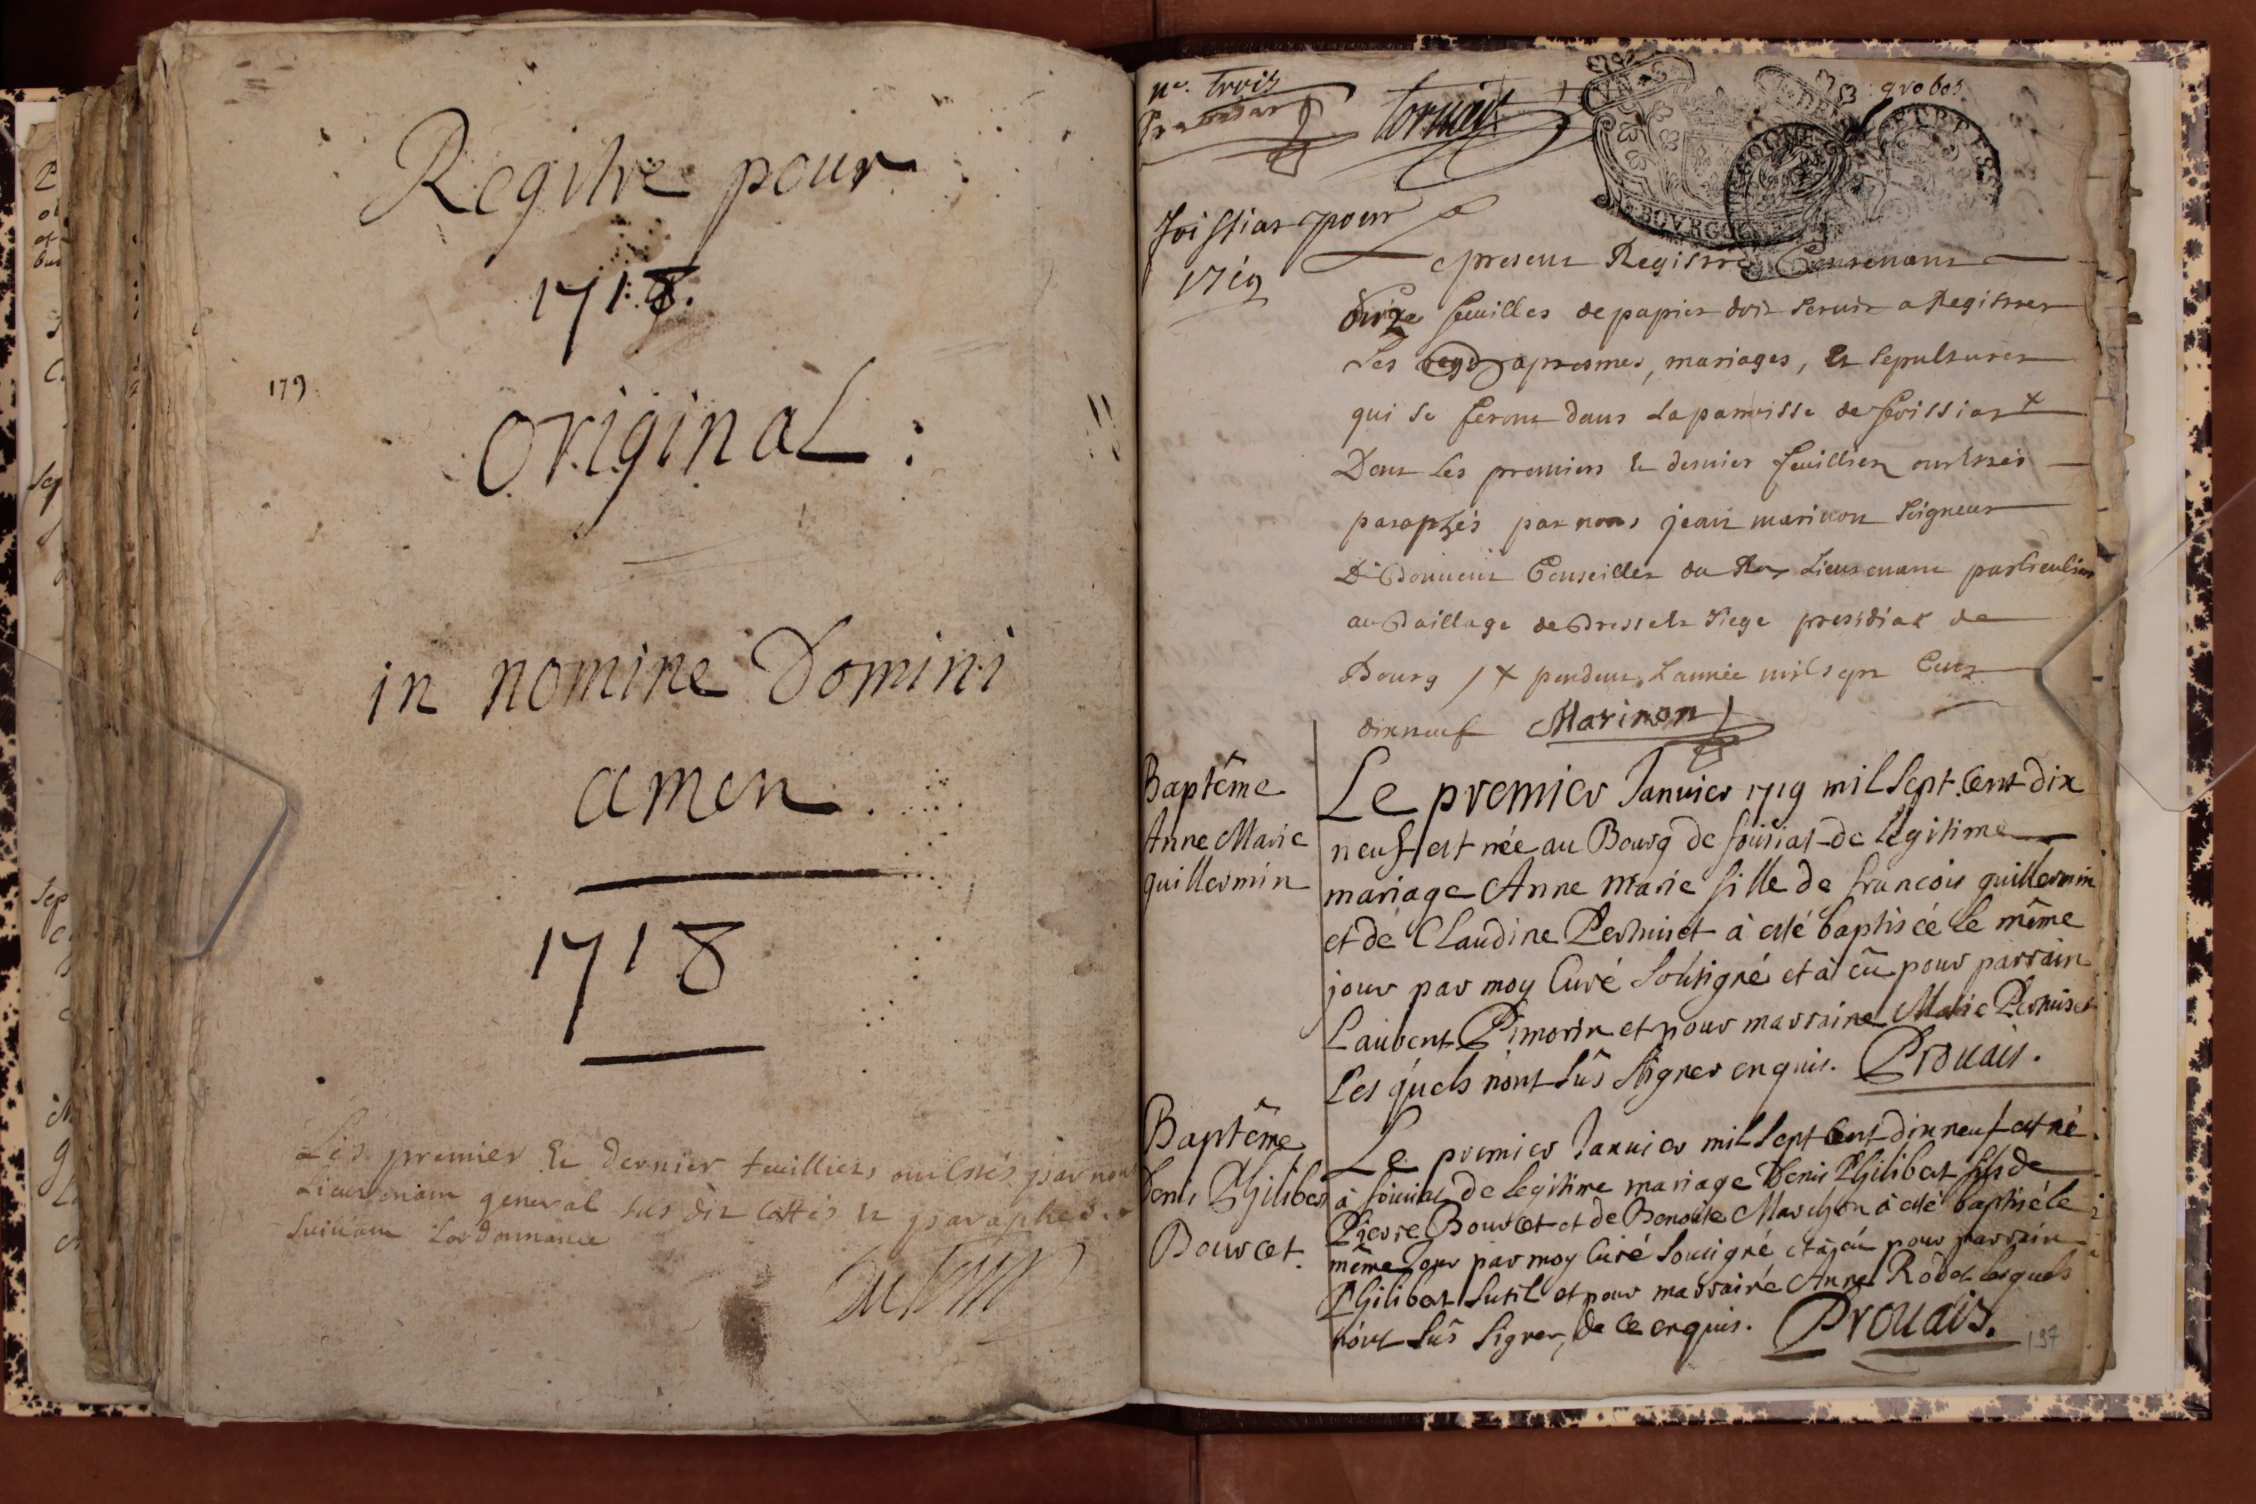 Regitre pour
1718.
179
original :
in nomine Domini
amen.
1718
Les premier & dernier feuilliets ont estés par nous
Lieutenant general sus dit cottés et paraphes
suivant Lordonnance
n.° trois
Foissiat pour
1719
present Registre Contenant
feuilles de papier doit servir a Registrer
Les baptesmes, mariages, et sepultures
qui se feront dans la paroisse de foissiat +
Dont les premiers et dernier feuillets ont estés
paraphés par nous jean marinon seigneur
Conseiller du Roy Lieutenant particulier
au Baillage de Bresse et siege presidial de
Bourg / + pendant L'année mil sept Cent
dixneuf Marinon
Baptême
Anne Marie
guillermin
Le premier Janvier 1719 mil sept Cent dix
neuf est née au Bourg de foissiat de legitime
mariage Anne Marie fille de francois guillermin
et de Claudine Perruset à esté baptiscé le même
jour par moy Curé soussigné et à eû pour parrain
Laurent Pimorin et pour marraine Marie Perruset
Les quels n'ont sûs signer enquis. Prouais.
Baptême
Denis Philibert
Bourcet.
Le premier Janvier mil sept Cent dix neuf est né
à foissiat de legitime mariage Denis Philibert fils de
Pierre Bourcet et de Benoite Marchon à esté baptisé le
même Jour par moy Curé soussigné et à eû pour parrain
Philibert sutil et pour marraine Anne Rodet lesquels
n'ont sûs signer, de ce enquis. Prouais.
197